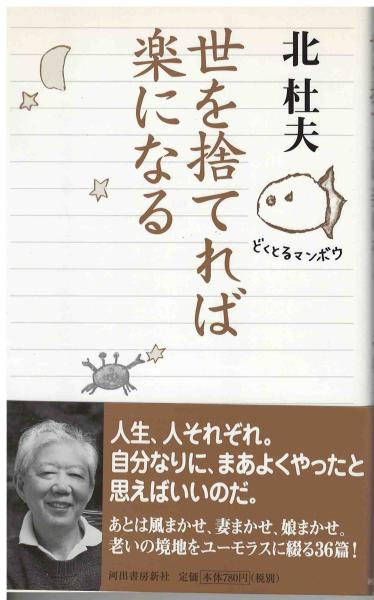 北 杜夫
世を捨てれば
楽になる
どくとるマンボウ
人生、人それぞれ。
自分なりに、まあよくやったと
思えばいいのだ。
あとは風まかせ、妻まかせ、娘まかせ。
老いの境地をユーモラスに綴る36篇!
河出書房新社 定価 本体780円(税別)